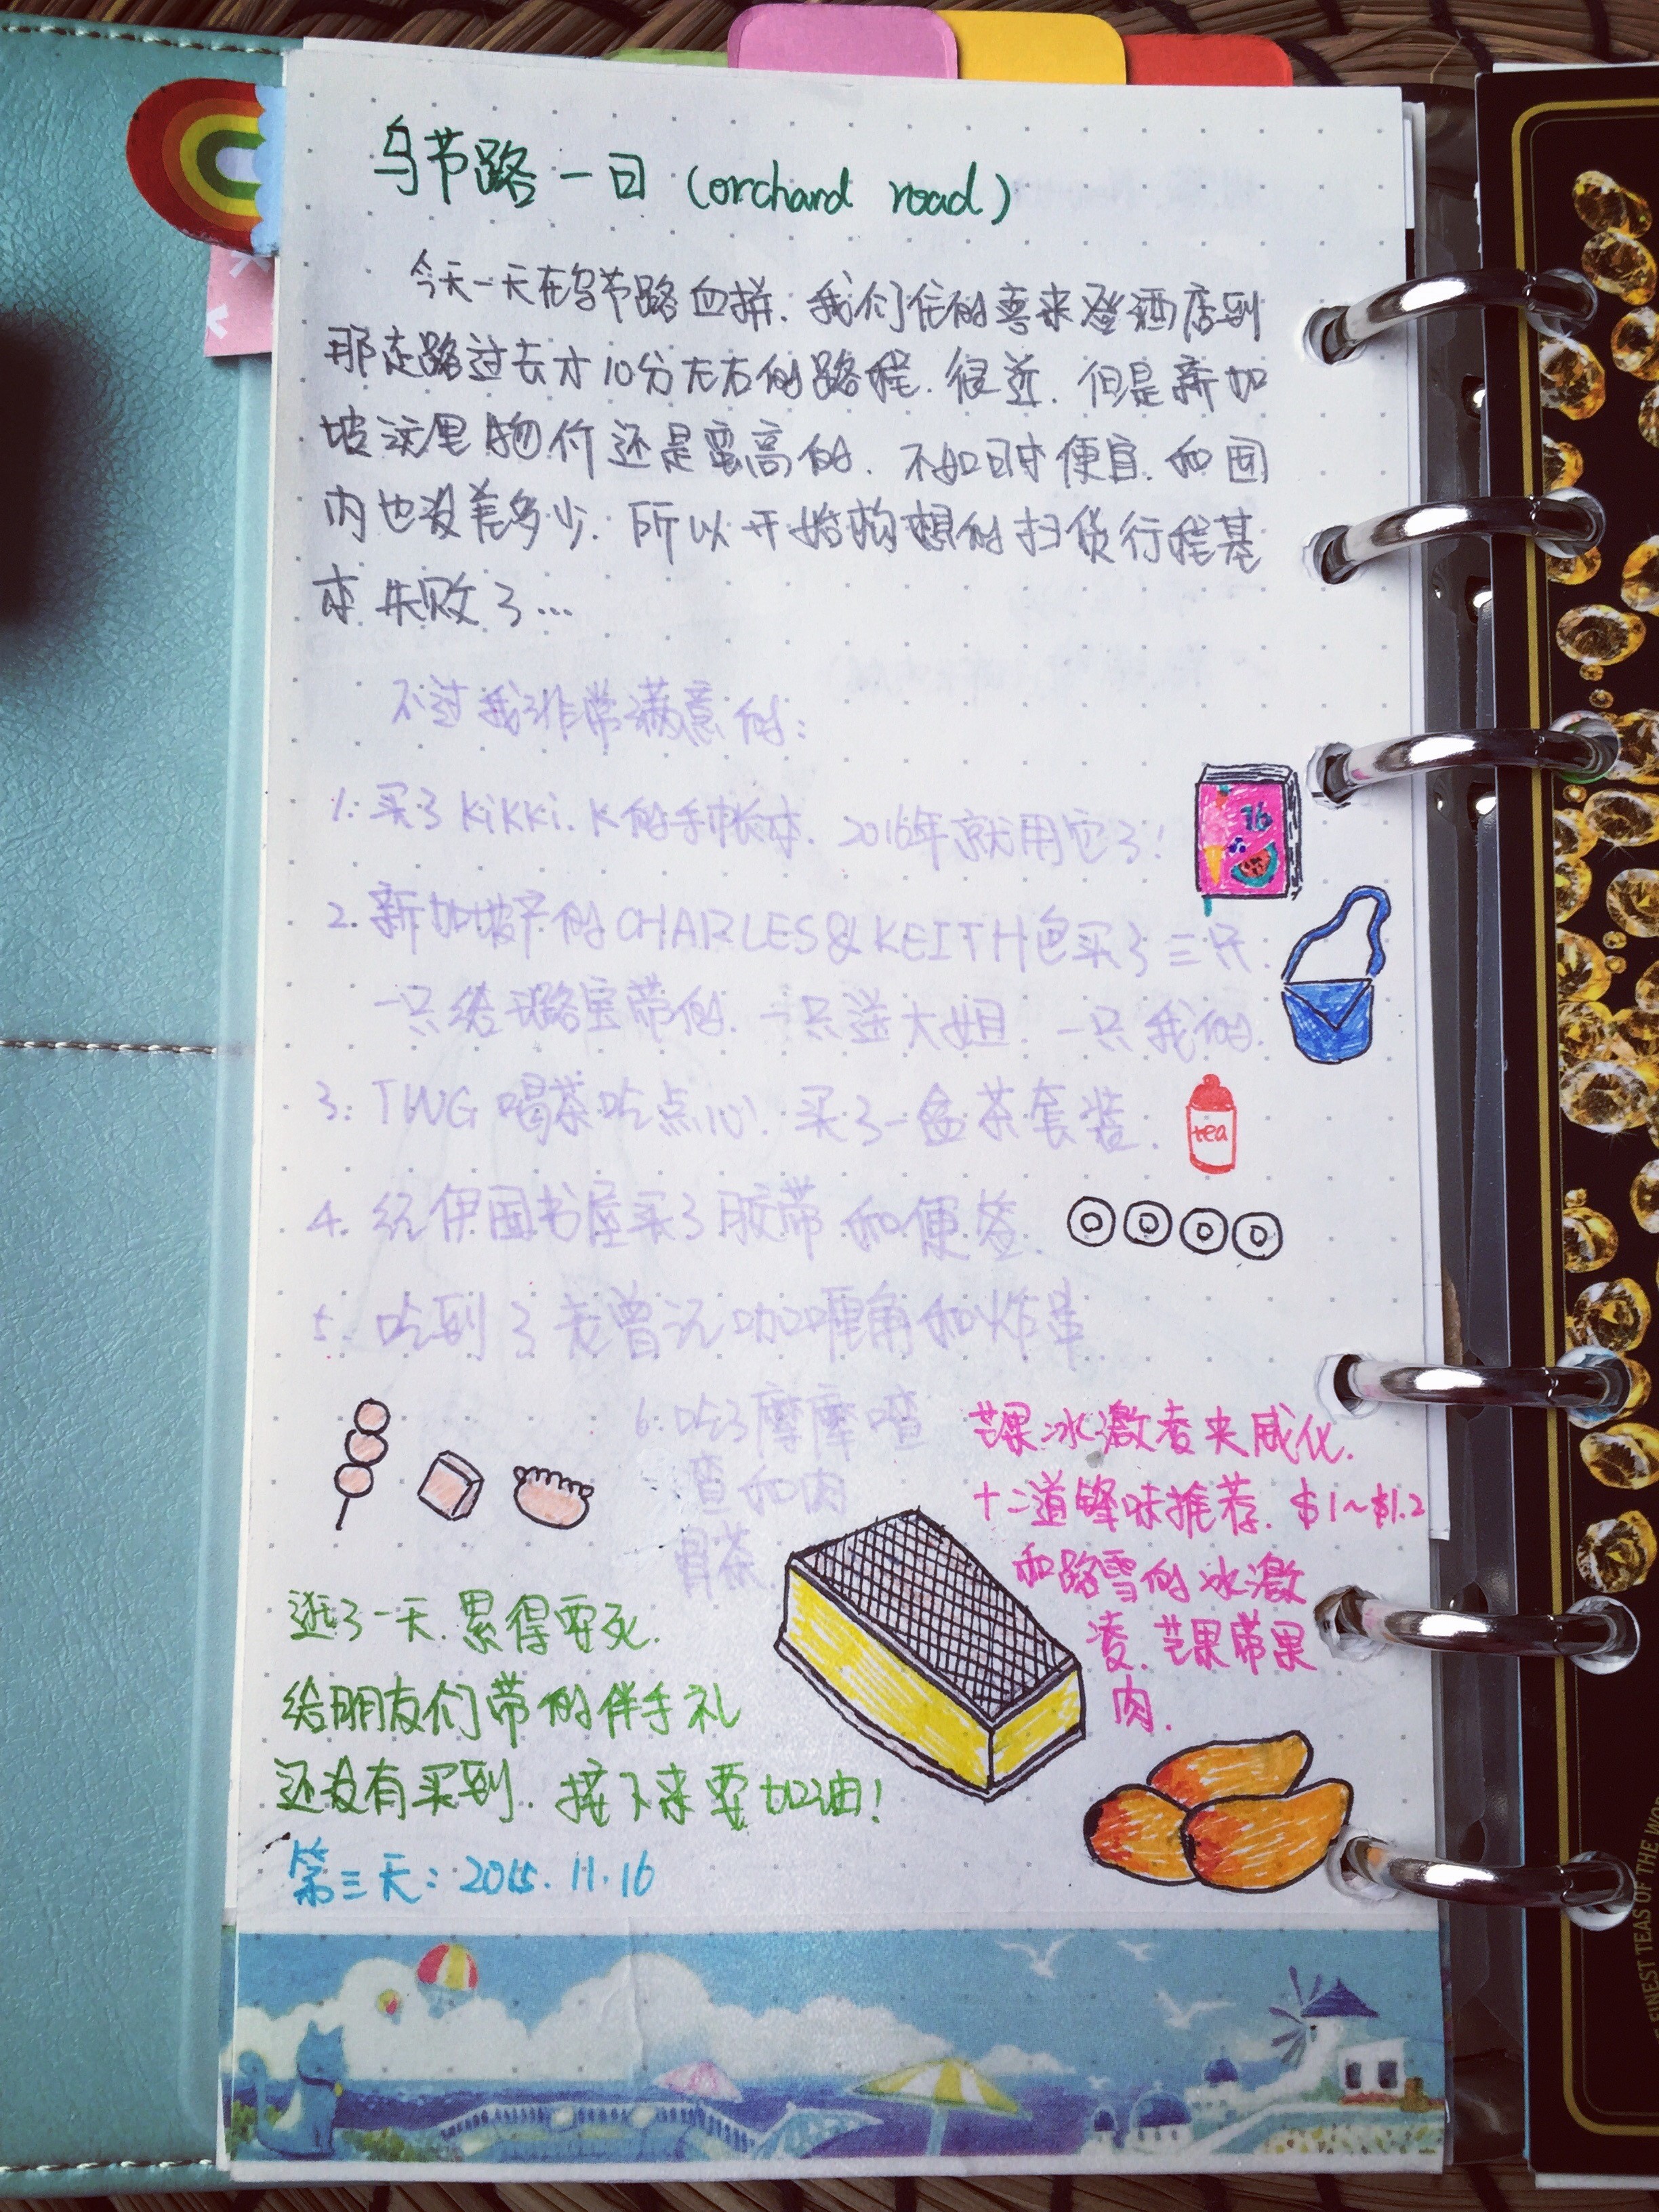 乌节路一日 (orchard road)
今天一天在乌节路血拼. 我们住的喜来登酒店到
那走路过去才10分左右的路程. 很近. 但是新加
坡这里物价还是蛮高的. 不如日本便宜. 和国
内也没差多少. 所以开始构想的扫货行程基
本失败了...
不过我非常满意的:
1. 买了 kikki. K的手帐本. 2016年就用它了!
16
2. 新加坡产的CHARLES&KEITH包买了三只.
一只给璐宝带的. 一只送大姐. 一只我的.
3. TWG 喝茶吃点心! 买了一盒茶套装.
tea
4. 纪伊国书屋买了胶带和便签.
5. 吃到了老曾记咖喱角和炸蛋
6. 吃了摩摩喳
喳和肉
骨茶.
芒果冰激凌夹威化.
十二道锋味推荐. $1~$1.2
和路雪的冰激
凌. 芒果带果
肉.
逛了一天. 累得要死.
给朋友们带的伴手礼
还没有买到. 接下来要加油!
第三天: 2015. 11. 16
FINEST TEAS OF THE